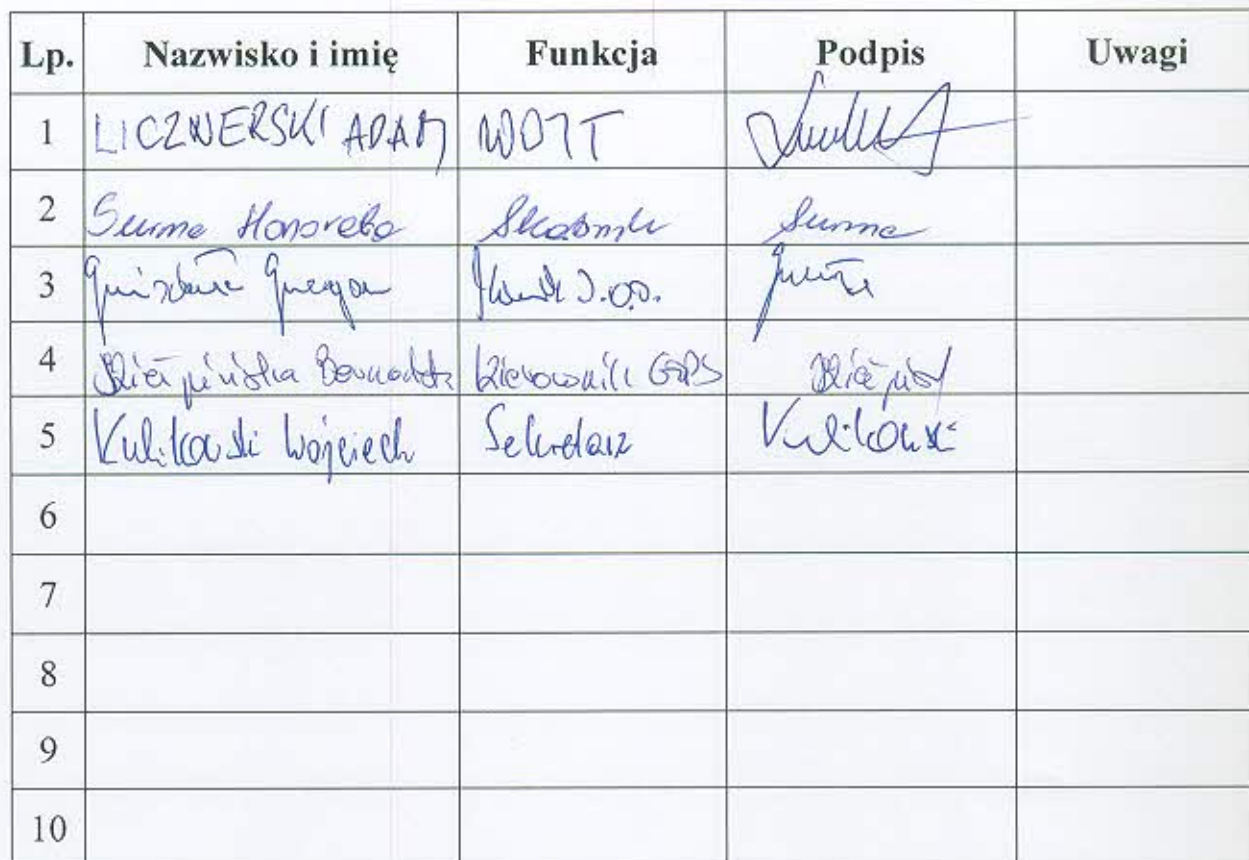 Lp. Nazwisko i imię Funkcja Podpis Uwagi
1 LICZNERSKI ADAM WÓJT
2 Surma Honorata Skarbnik Surma
3
4 Bernadeta Kierownik GOPS
5 Kulikowski Wojciech Sekretarz Kulikowski
6
7
8
9
10